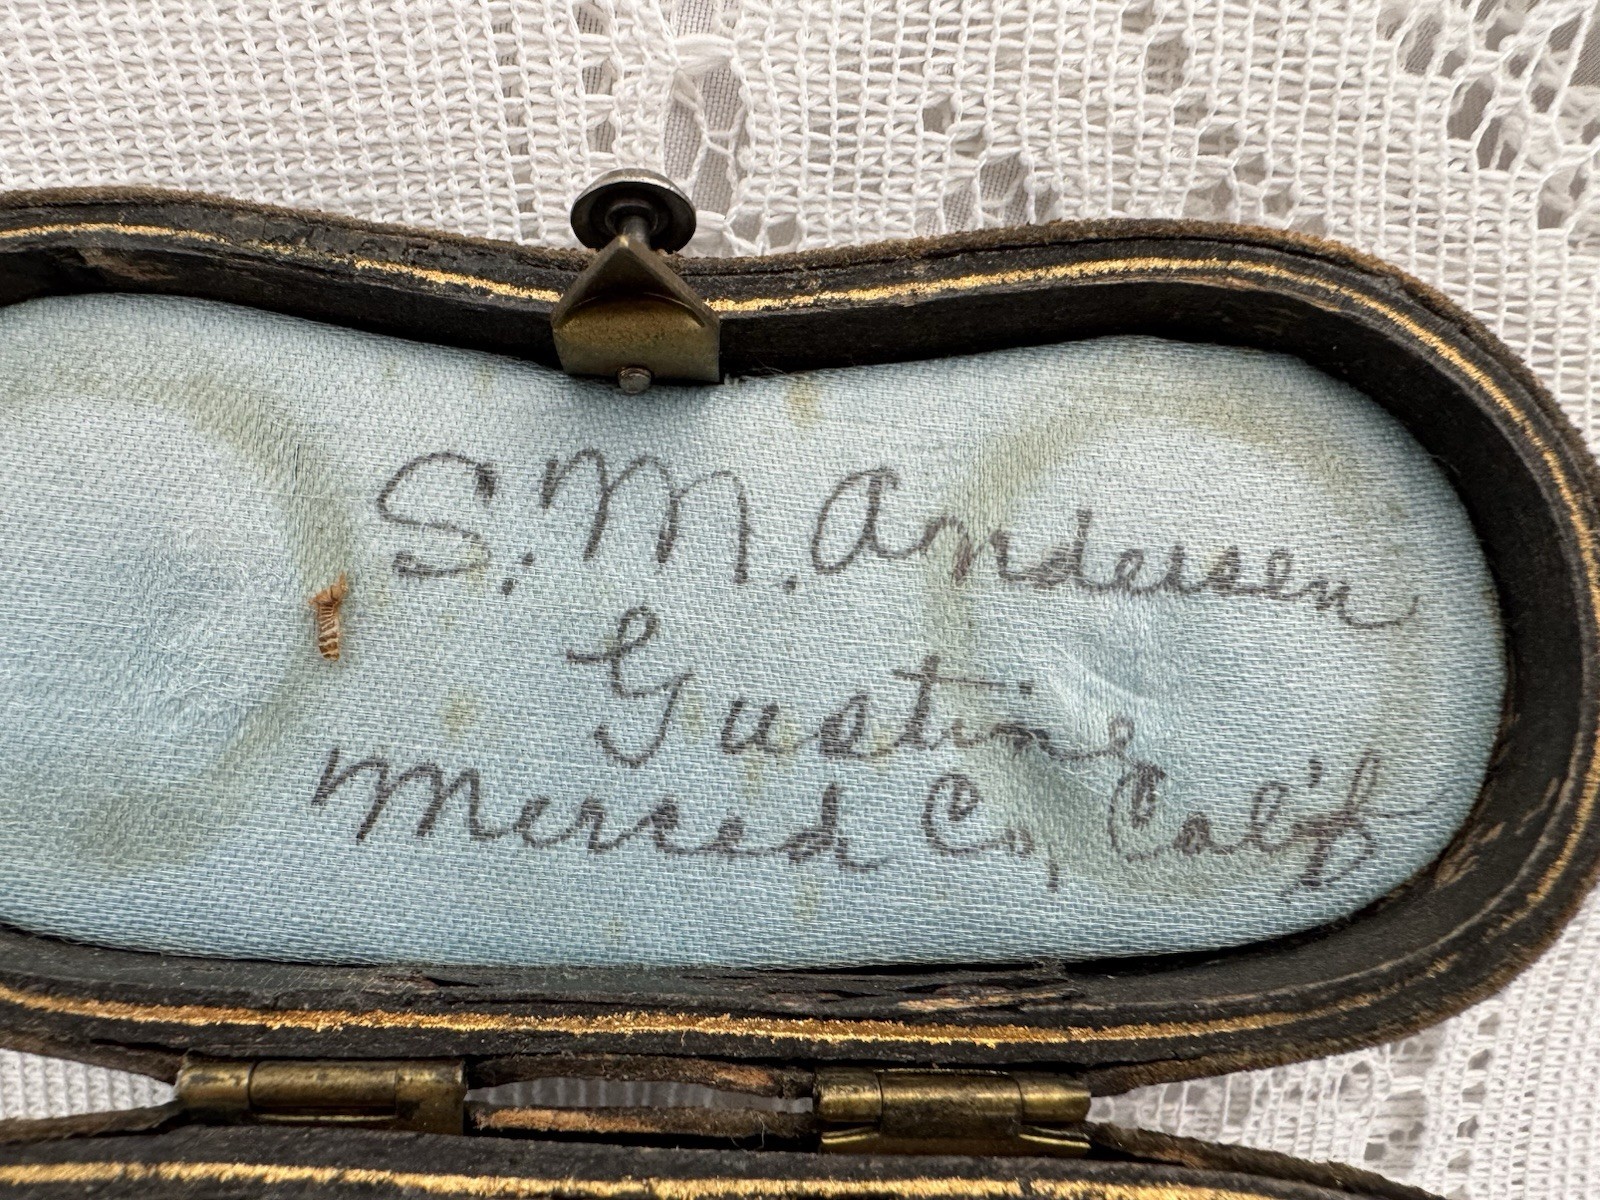 S. M. Andersen
Gustine
Merced Co, Calif